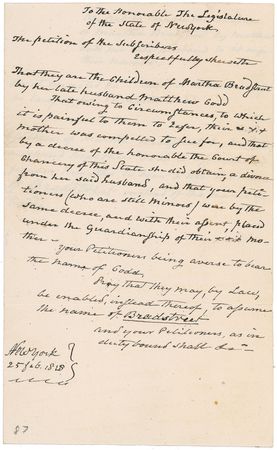 To the Honorable The Legislature
of the State of New York.
The petition of the Subscribers
Respectfully Sheweth
That they are the Children of Martha Bradstreet
by her late husband Matthew Codd
That owing to Circumstances, to which
it is painful to them to refer, their
mother was compelled to sue for, and that
by a decree of the honorable the Court of
Chancery of this State she did obtain a divorce
from her said husband, and that your peti-
tioners (who are still Minors) was by the
same decree, and with their assent, placed
under the Guardianship of their mo-
ther —
your Petitioners being averse to bear
the name of Codd.
Pray that they may, by Law,
be enabled, instead thereof, to assume
the name of Bradstreet
and your Petitioners, as in
duty bound shall &a —
New York
25 feb. 1818